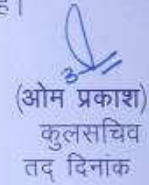 है।
(ओम प्रकाश)
कुलसचिव
तद् दिनांक